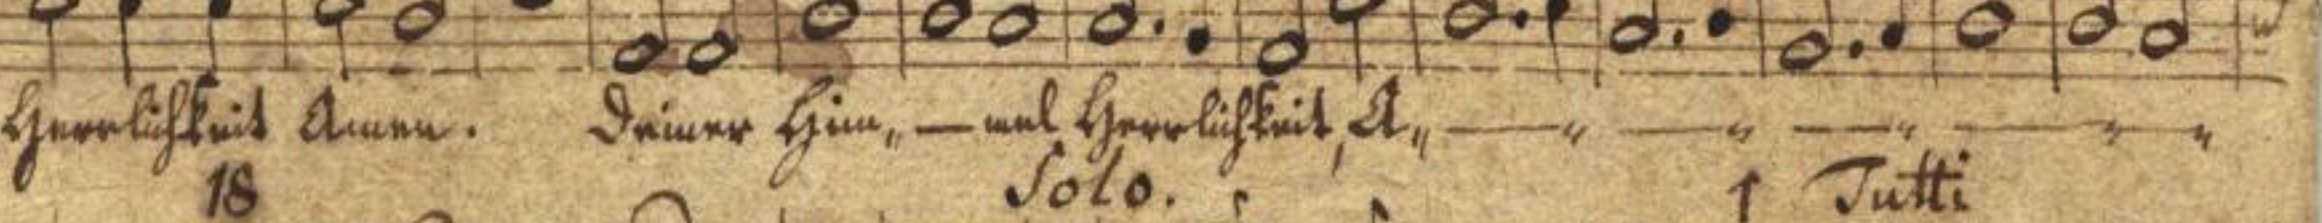 Herrlichkeit Amen. Deiner Him„ — mel Herrlichkeit, A„ — „ — „ — „ — „ — „
18 Solo. 1 Tutti